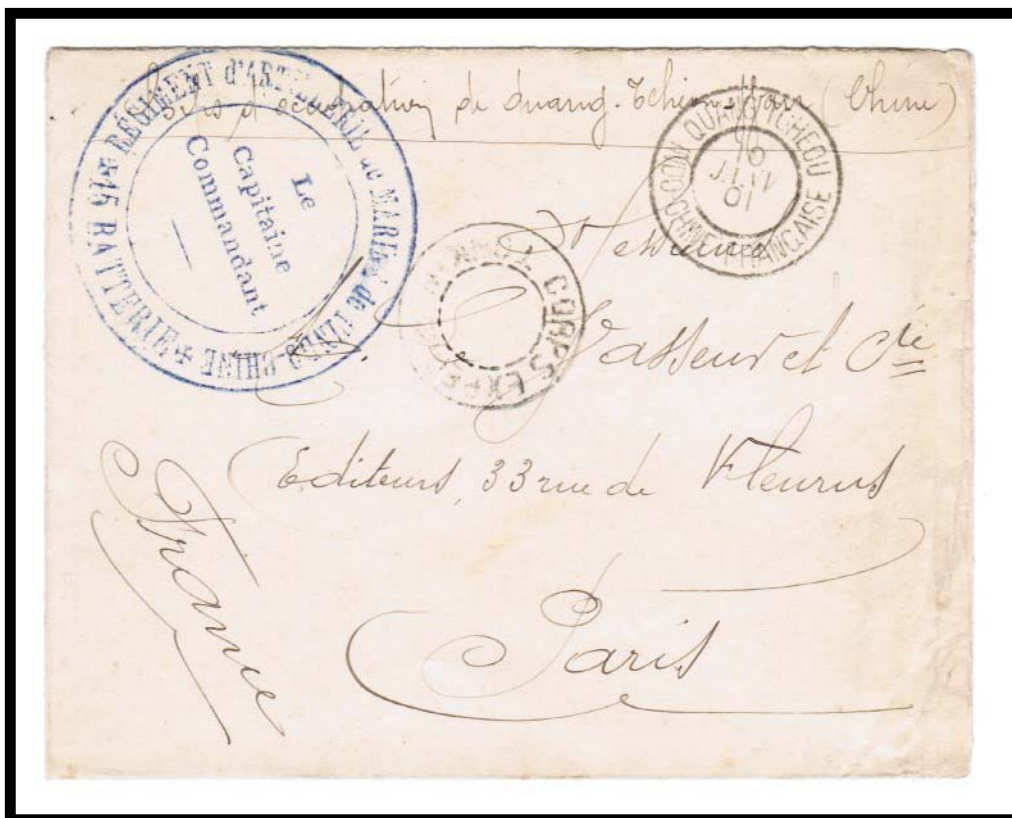 Corps d'occupation de Quang-Tchéou-Wan (Chine)
RÉGIMENT d'ARTILLERIE de MARINE de l'INDO-CHINE
* 15 BATTERIE *
Le
Capitaine
Commandant
QUANG TCHEOU
INDO-CHINE FRANÇAISE
10
CORPS EXP
Messieurs
Vasseur et Cie
Editeurs, 33 rue de Fleurus
Paris
France